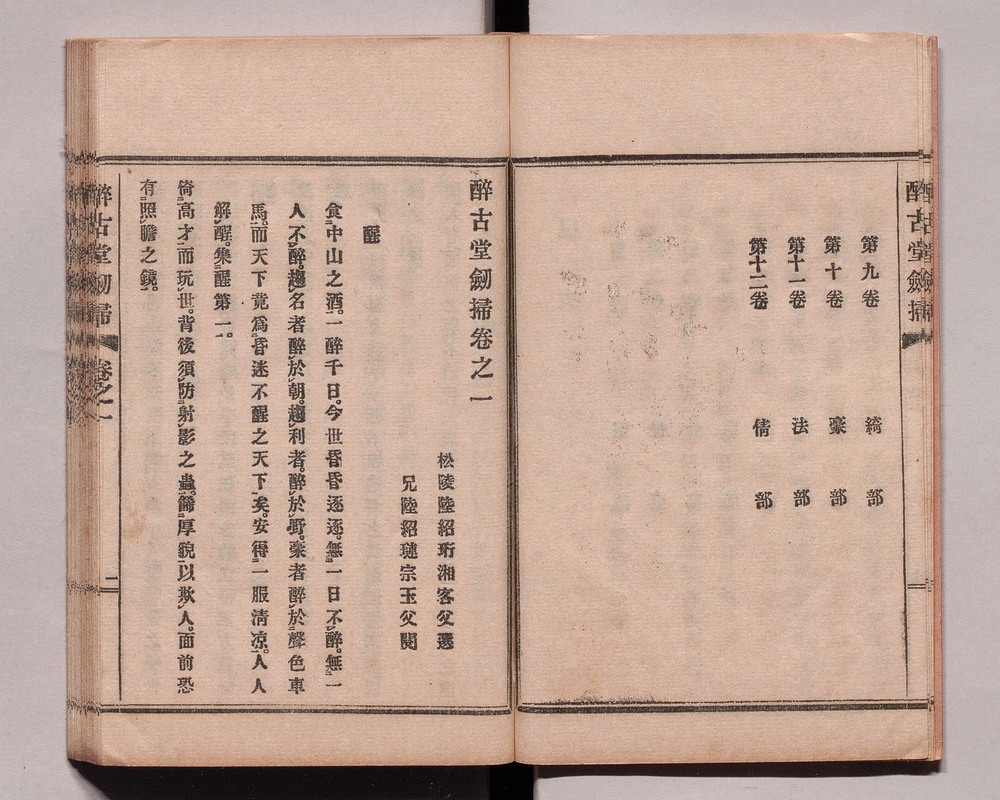 醉古堂劒掃
第九卷 綺部
第十卷 豪部
第十一卷 法部
第十二卷 倩部
醉古堂劒掃卷之一
松陵陸紹珩湘客父選
兄陸紹璉宗玉父閱
醒
食中山之酒。一醉千日。今世昏昏逐逐。無一日不醉。無一
人不醉。趨名者醉於朝。趨利者。醉於野。豪者醉於聲色車
馬。而天下竟爲昏迷不醒之天下矣。安得一服淸凉。人人
解醒。集醒第一。
倚高才而玩世。背後須防射影之蟲。飾厚貌以欺人。面前恐
有照膽之鏡。
醉古堂劒掃 卷之一 二